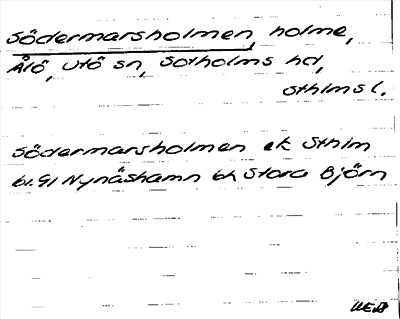 Södermarsholmen, holme,
Ålö, Utö sn, Sotholms hd,
Sthlms l.
Södermarsholmen ek Sthlm
bl.91 Nynäshamn bh Stora Björn